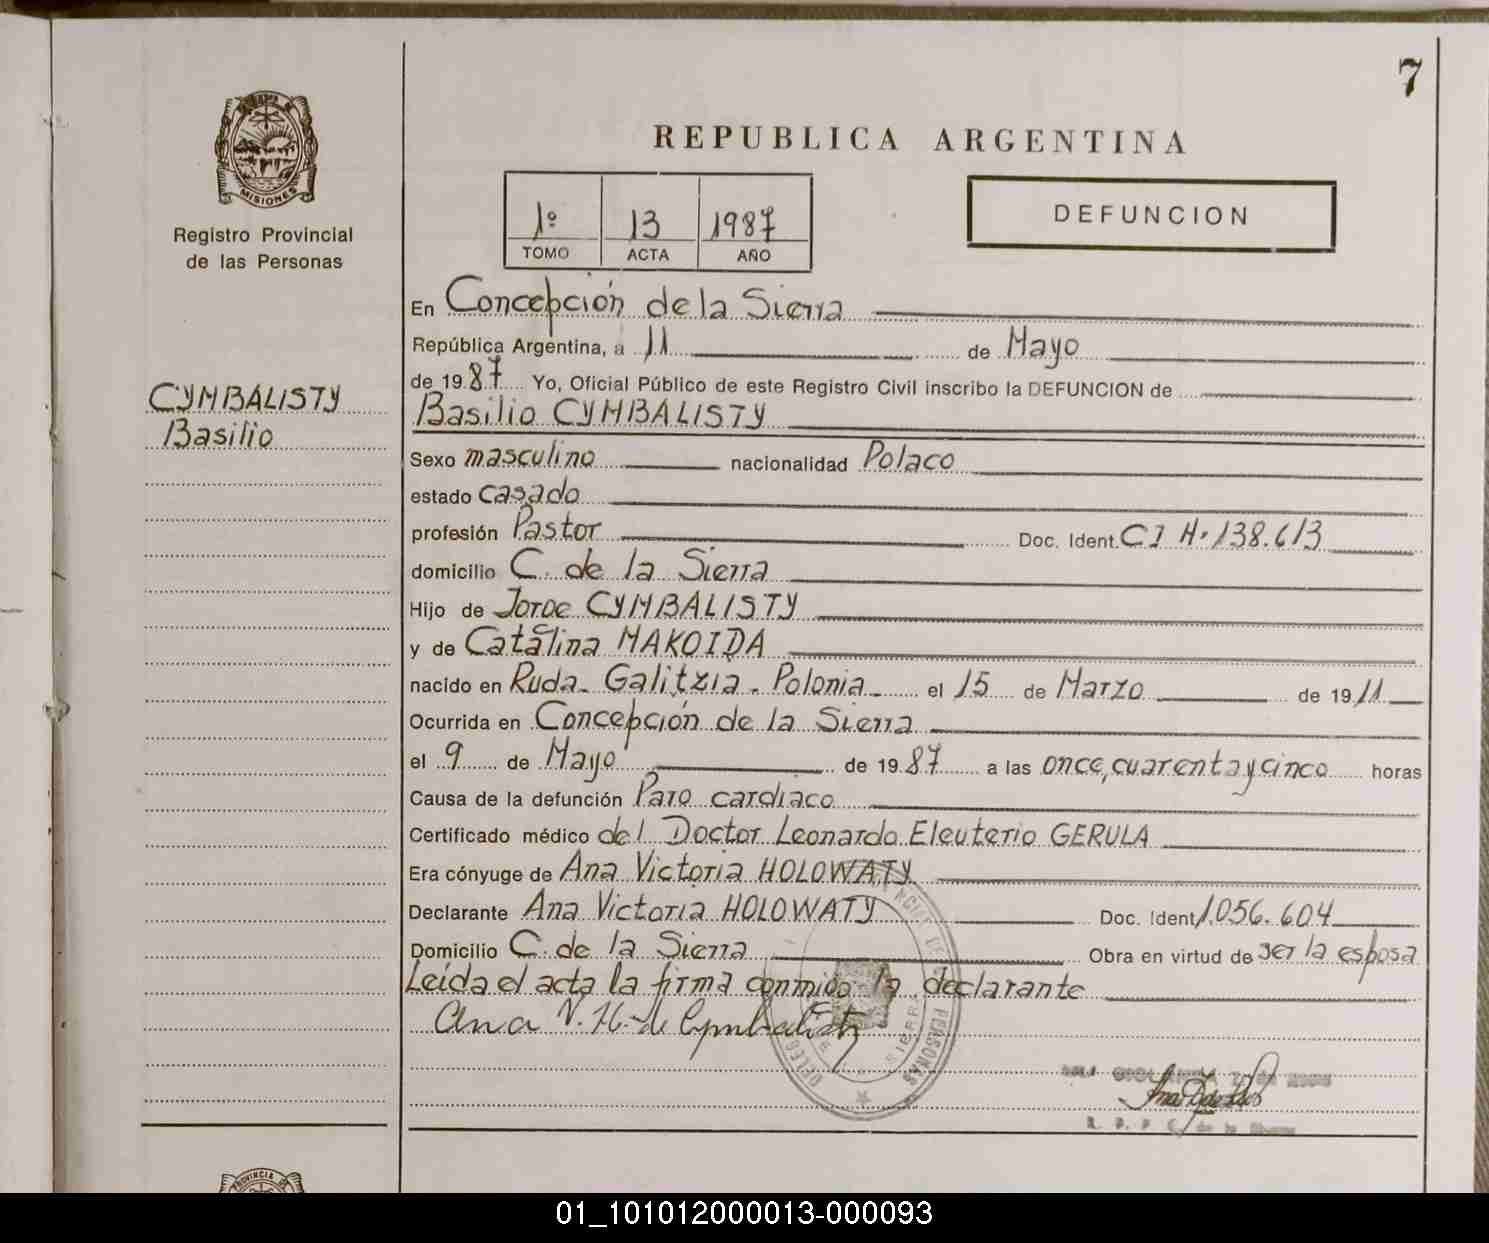 7
MISIONES
Registro Provincial
de las Personas
REPUBLICA ARGENTINA
1º 13 1987
TOMO ACTA AÑO
DEFUNCION
CYMBALISTY
Basilio
En Concepción de la Sierra
República Argentina, a 11 de Mayo
de 1987 Yo, Oficial Público de este Registro Civil inscribo la DEFUNCION de
Basilio CYMBALISTY
Sexo masculino nacionalidad Polaco
estado casado
profesión Pastor Doc. Ident. CI Nº 138.613
domicilio C. de la Sierra
Hijo de Jorge CYMBALISTY
y de Catalina MAKOIDA
nacido en Ruda - Galitzia - Polonia - el 15 de Marzo de 1911
Ocurrida en Concepción de la Sierra
el 9 de Mayo de 1987 a las once, cuarenta y cinco horas
Causa de la defunción Paro cardiaco
Certificado médico del Doctor Leonardo Eleuterio GERULA
Era cónyuge de Ana Victoria HOLOWATY
Declarante Ana Victoria HOLOWATY Doc. Ident 1.056.604
Domicilio C. de la Sierra Obra en virtud de ser la esposa
Leída el acta la firma conmigo la declarante
Ana V. H. de Cymbalisty
PERSONAS
SIERRA
PROVINCIA
01_101012000013-000093